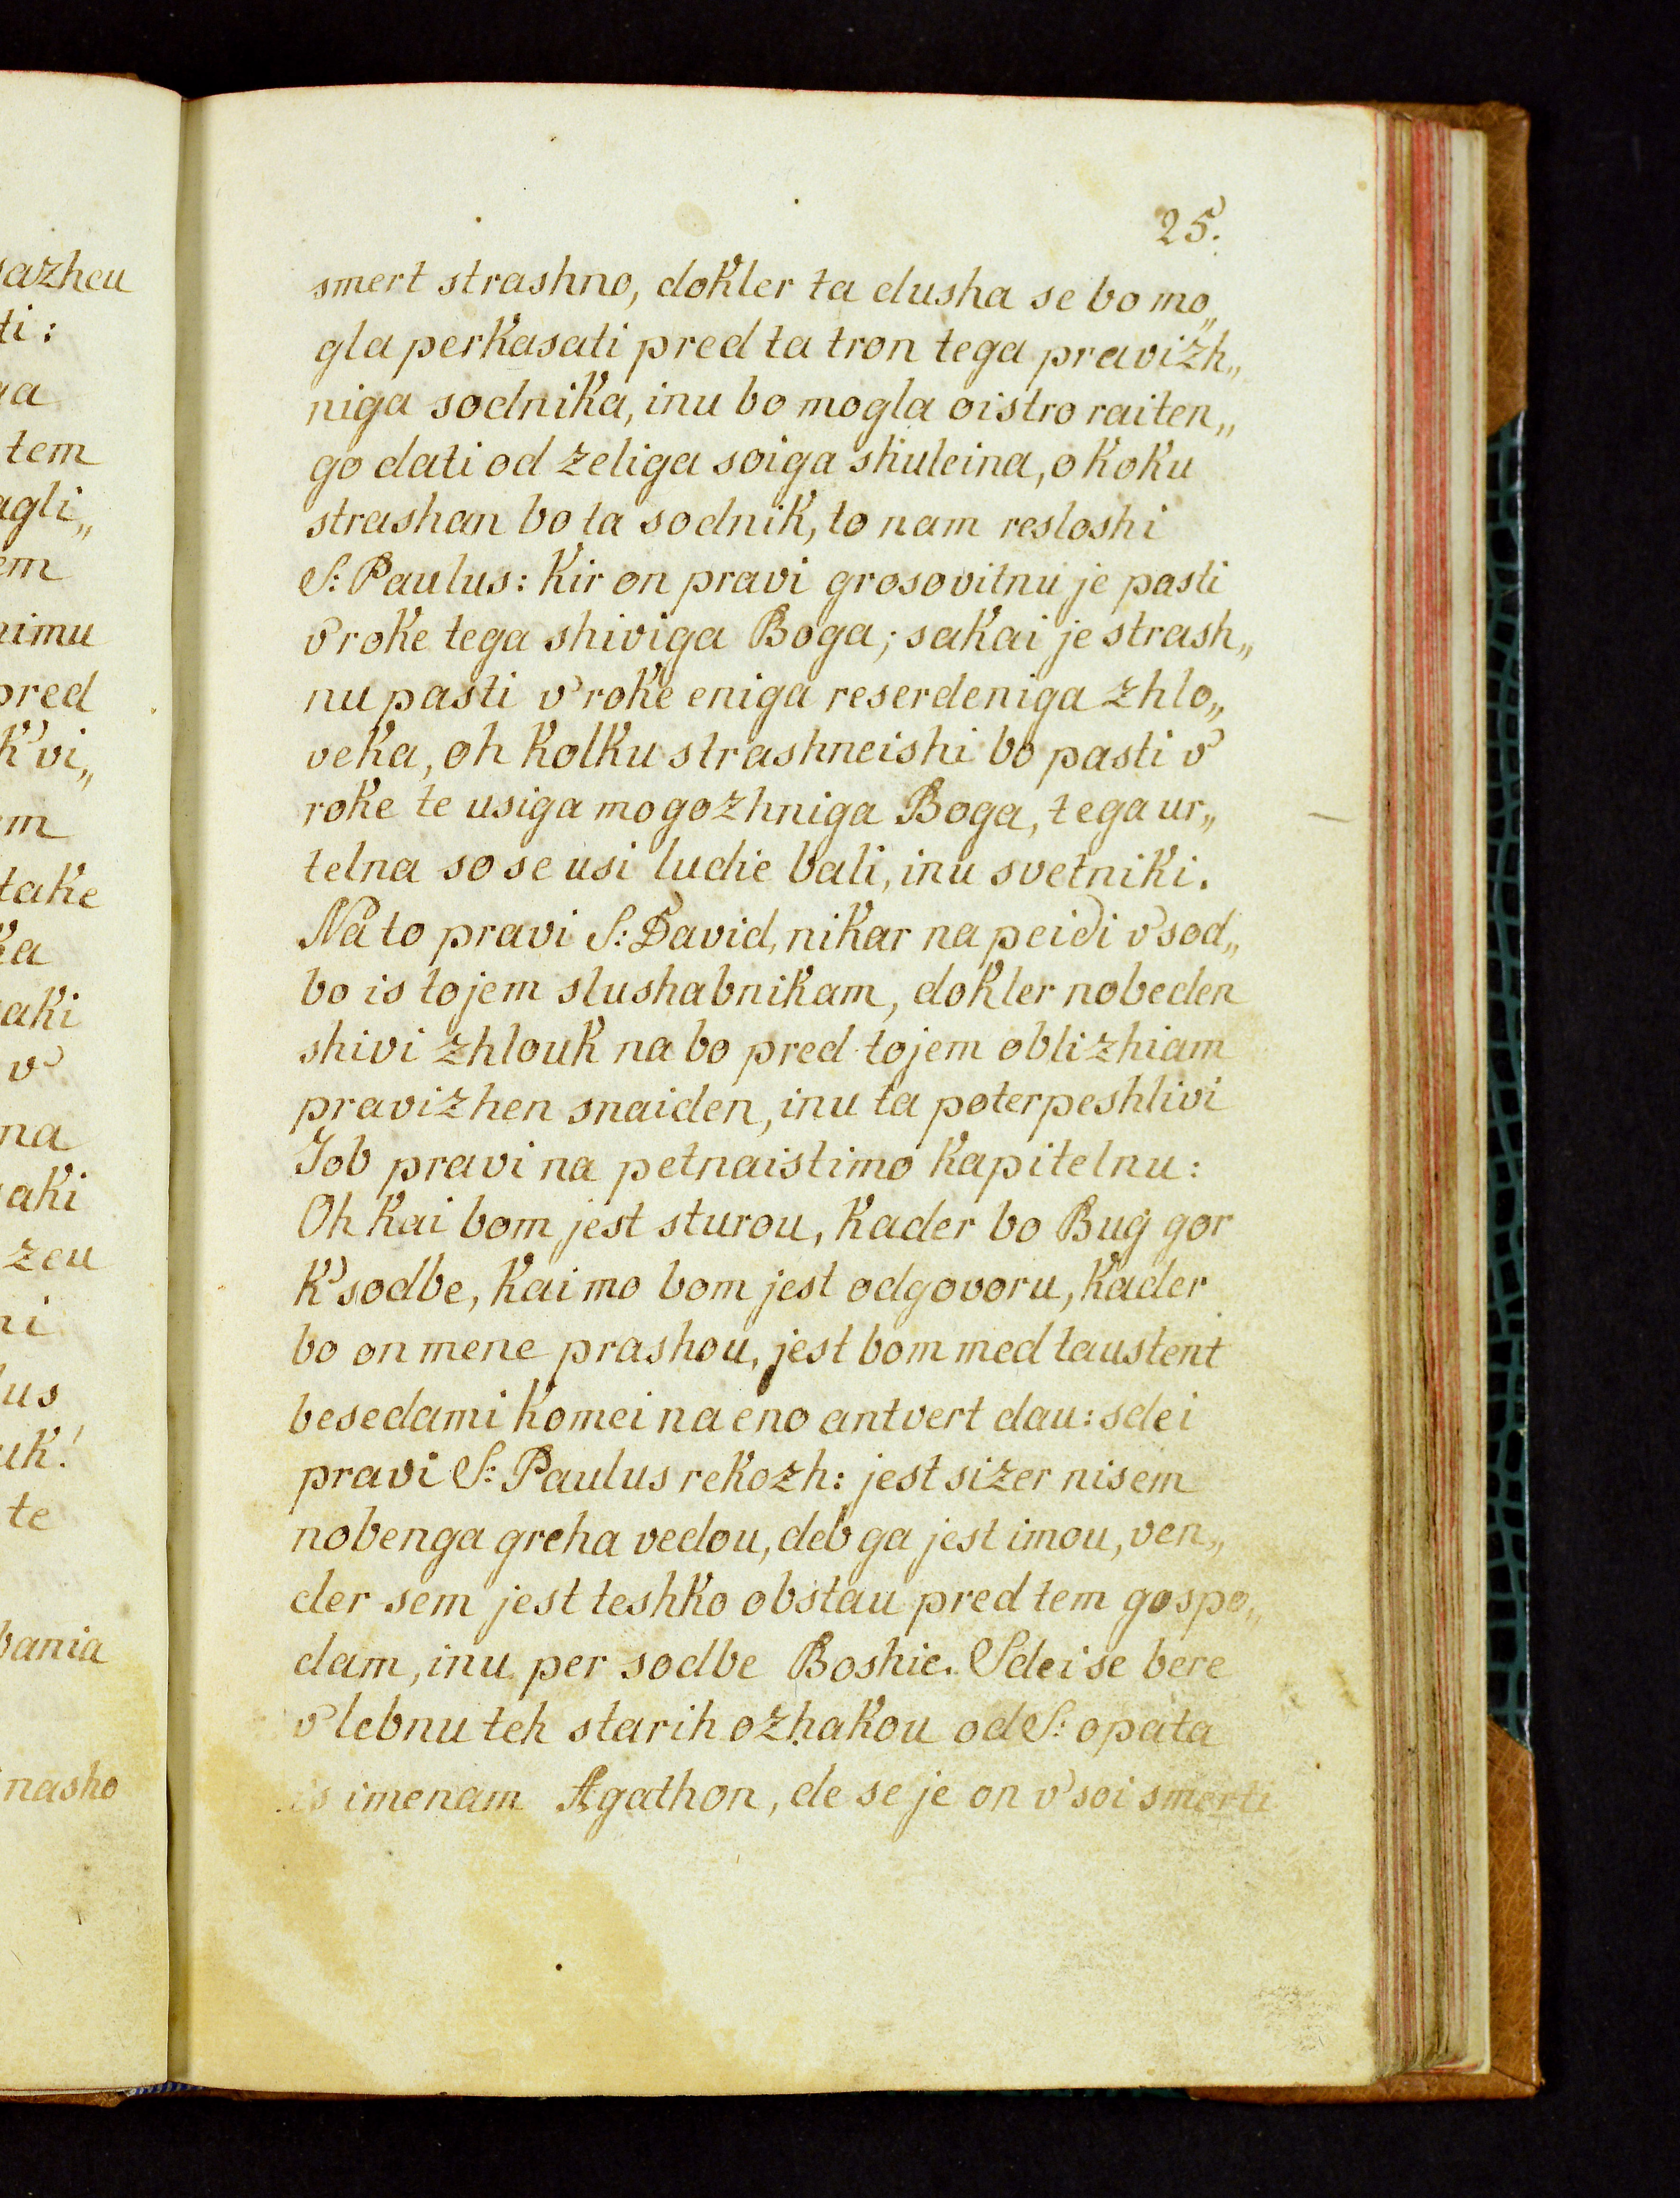 25.
smert strashno, dokler ta dusha se bo mo„
gla perkasati pred ta tron tega pravizh„
niga sodnika, inu bo mogla oistro raiten„
go dati od zeliga soiga shuleina, o koku
strashan bo ta sodnik, to nam resloshi
S: Paulus: Kir on pravi grosovitnu je pasti
v'roke tega shiviga Boga; sakai je strash„
nu pasti v'roke eniga reserdeniga zhlo„
veka, oh kolku strashneishi bo pasti v'
roke te usiga mogozhniga Boga, tega ur„
telna so se usi ludie bali, inu svetniki.
Na to pravi S: David, nikar na peidi v'sod„
bo is tojem slushabnikam, dokler nobeden
shivi zhlouk na bo pred tojem oblizhiam
pravizhen snaiden, inu ta poterpeshlivi
Job pravi na petnaistimo kapitelnu:
Oh kai bom jest sturou, kader bo Bug gor
k'sodbe, kai mo bom jest odgovoru, kader
bo on mene prashou, jest bom med taustent
besedami komei na eno antvert dau: sdei
pravi S: Paulus rekozh: jest sizer nisem
nobenga greha vedou, deb ga jest imou, ven„
der sem jest teshko obstau pred tem gospo„
dam, inu per sodbe Boshie. Sdei se bere
v'lebnu teh starih ozhakou od S: opata
is imenam Agathon, de se je on v'soi smerti
sazheu
ti:
tem
agli„
em
nimu
pred
k'vi„
m
take
ka
aki
v'
na
aki
zeu
ni
lus
uk!
te
bania
nasho